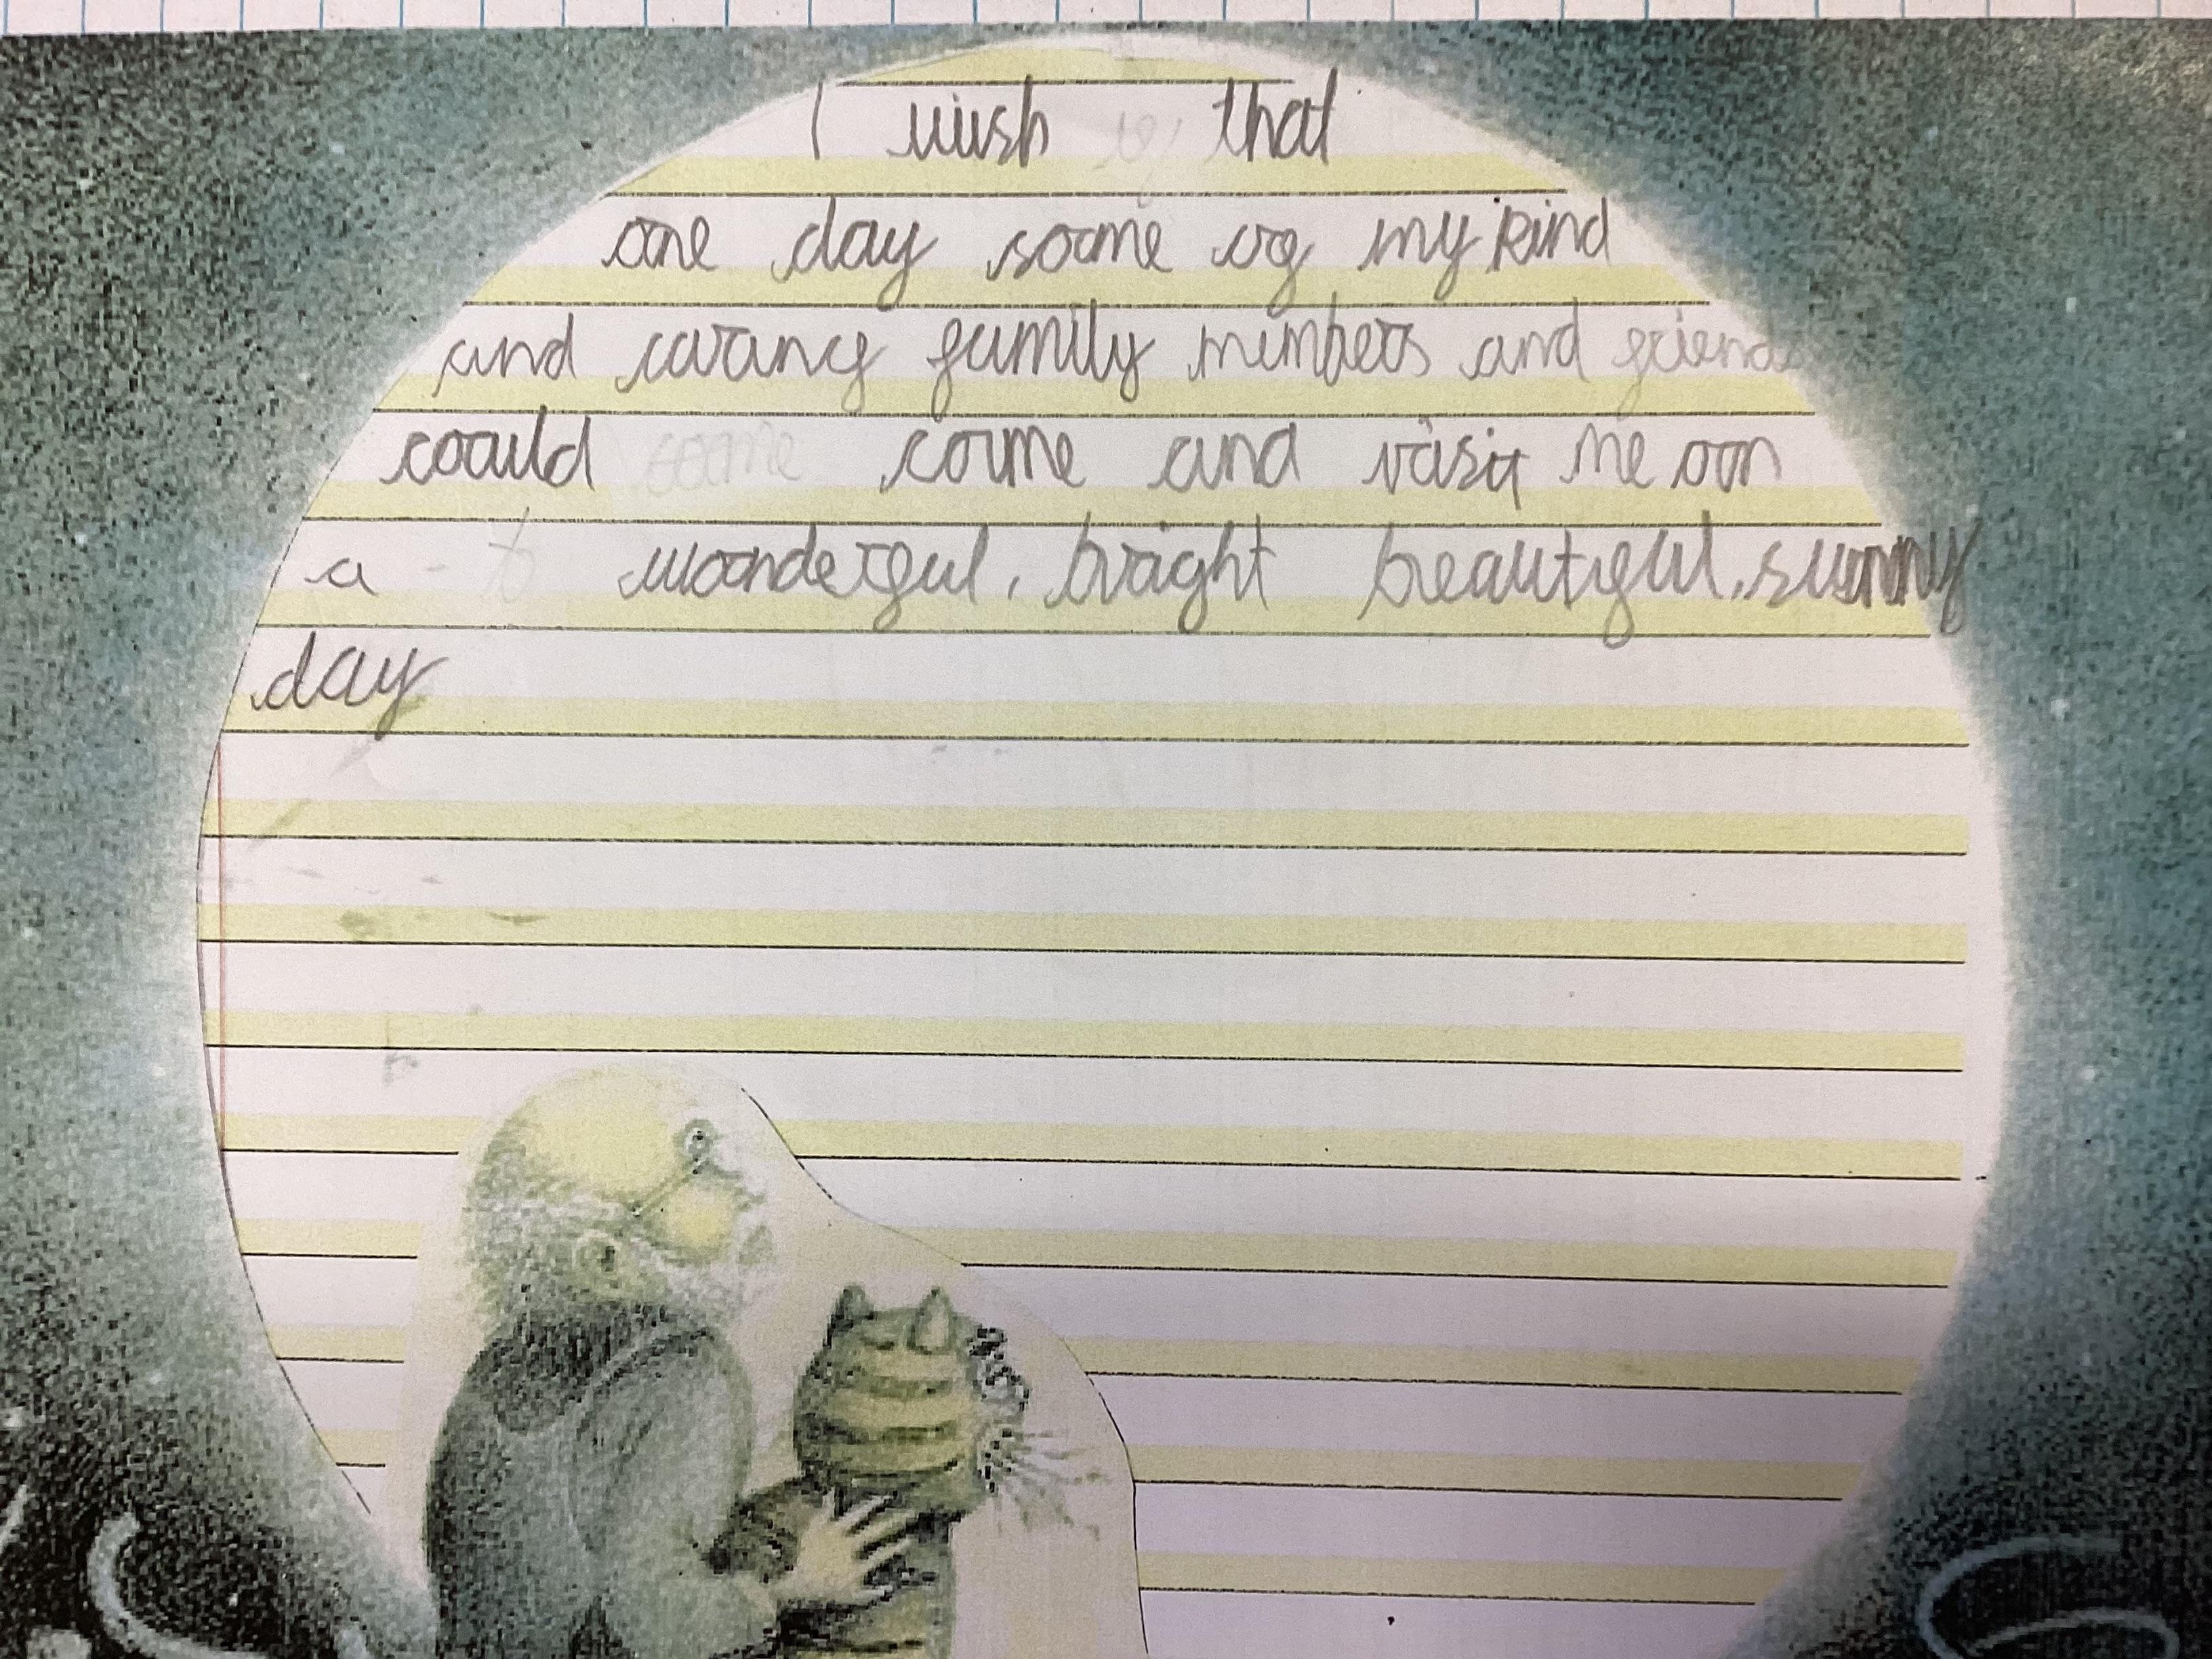 I wish that
one day some of my kind
and caring family members and friends
could come and visit me on
a wonderful, bright beautiful, sunny
day